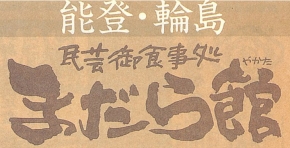 能登・輪島
民芸御食事処
やかた
まだら館